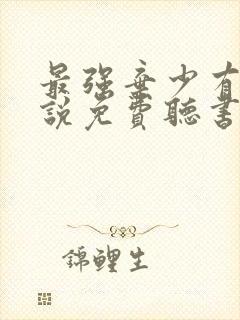 最强棄少有
說免費聽書
錦鯉生